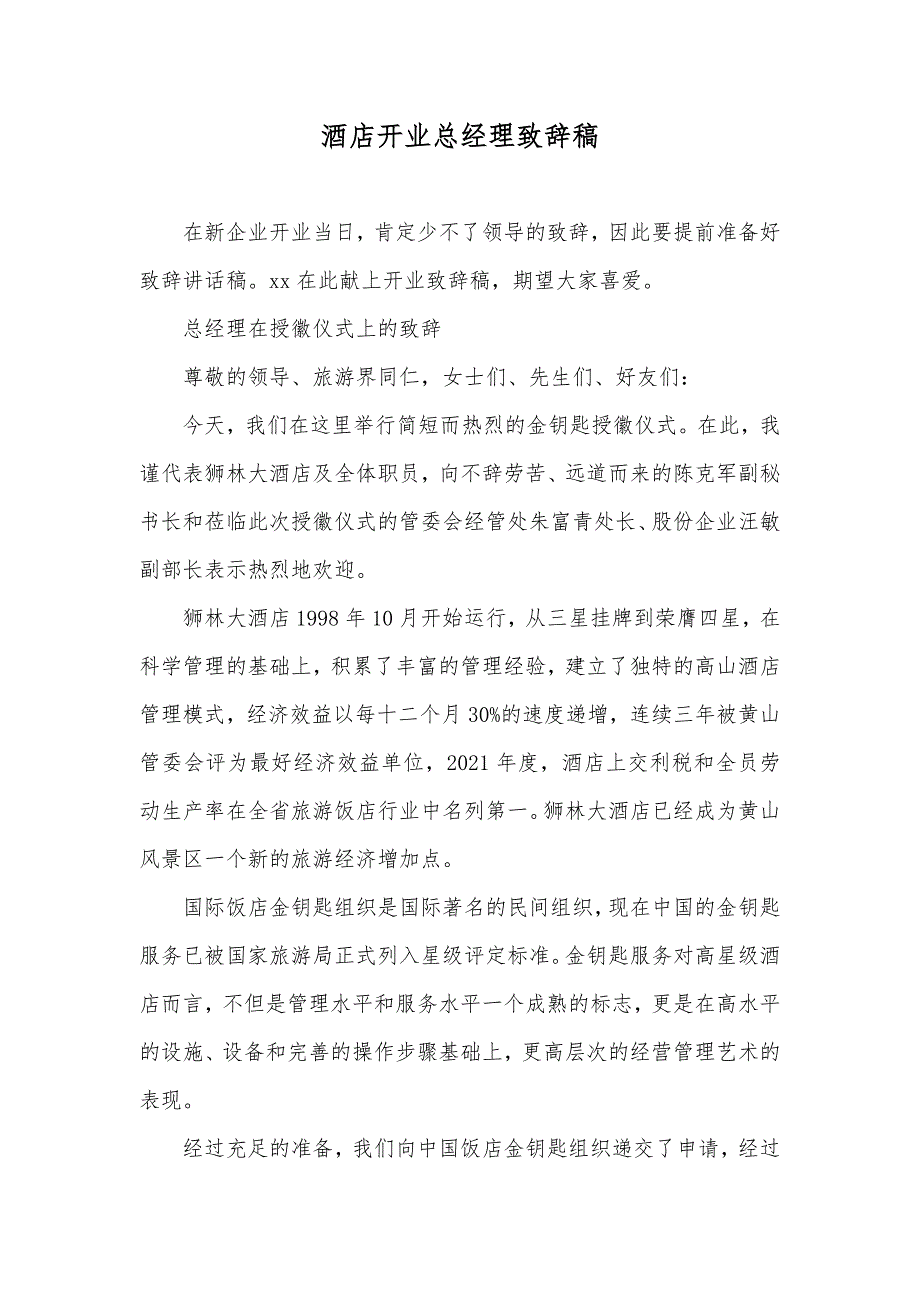 酒店开业总经理致辞稿
在新企业开业当日，肯定少不了领导的致辞，因此要提前准备好
致辞讲话稿。xx 在此献上开业致辞稿，期望大家喜爱。
总经理在授徽仪式上的致辞
尊敬的领导、旅游界同仁，女士们、先生们、好友们：
今天，我们在这里举行简短而热烈的金钥匙授徽仪式。在此，我
谨代表狮林大酒店及全体职员，向不辞劳苦、远道而来的陈克军副秘
书长和莅临此次授徽仪式的管委会经管处朱富青处长、股份企业汪敏
副部长表示热烈地欢迎。
狮林大酒店 1998 年 10 月开始运行，从三星挂牌到荣膺四星，在
科学管理的基础上，积累了丰富的管理经验，建立了独特的高山酒店
管理模式，经济效益以每十二个月 30%的速度递增，连续三年被黄山
管委会评为最好经济效益单位，2021 年度，酒店上交利税和全员劳
动生产率在全省旅游饭店行业中名列第一。狮林大酒店已经成为黄山
风景区一个新的旅游经济增加点。
国际饭店金钥匙组织是国际著名的民间组织，现在中国的金钥匙
服务已被国家旅游局正式列入星级评定标准。金钥匙服务对高星级酒
店而言，不但是管理水平和服务水平一个成熟的标志，更是在高水平
的设施、设备和完善的操作步骤基础上，更高层次的经营管理艺术的
表现。
经过充足的准备，我们向中国饭店金钥匙组织递交了申请，经过